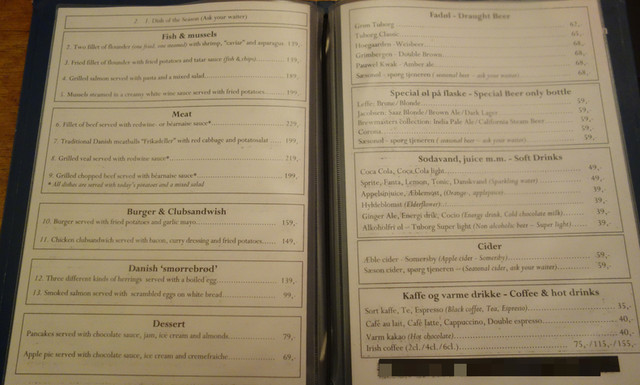 2. - 3. Dish of the Season (Ask your waiter)
Fish & mussels
2. Two fillet of flounder (one fried, one steamed) with shrimp, "caviar" and asparagus 139,-
3. Fried fillet of flounder with fried potatoes and tatar sauce (fish & chips) 139,-
4. Grilled salmon served with pasta and a mixed salad 189,-
5. Mussels steamed in a creamy white wine sauce served with fried potatoes 199,-
Meat
6. Fillet of beef served with redwine- or béarnaise sauce* 229,-
7. Traditional Danish meatballs "Frikadeller" with red cabbage and potatosalat 199,-
8. Grilled veal served with redwine sauce* 219,-
9. Grilled chopped beef served with béarnaise sauce* 199,-
* All dishes are served with today's potatoes and a mixed salad
Burger & Clubsandwish
10. Burger served with fried potatoes and garlic mayo 159,-
11. Chicken clubsandwich served with bacon, curry dressing and fried potatoes 149,-
Danish 'smørrebrød'
12. Three different kinds of herrings served with a boiled egg 139,-
13. Smoked salmon served with scrambled eggs on white bread 99,-
Dessert
Pancakes served with chocolate sauce, jam, ice cream and almonds 79,-
Apple pie served with chocolate sauce, ice cream and cremefraiche 69,-
Fadøl - Draught Beer
Grøn Tuborg 62,-
Tuborg Classic 65,-
Hoegaarden - Weissbeer 68,-
Grimbergen - Double Brown 68,-
Pauwel Kwak - Amber ale 68,-
Sæsonøl - spørg tjeneren (seasonal beer - ask your waiter) 68,-
Special øl på flaske - Special Beer only bottle
Leffe: Brune/Blonde 59,-
Jacobsen: Saaz Blonde/Brown Ale/Dark Lager 59,-
Brewmasters Collection: India Pale Ale/California Steam Beer 59,-
Corona 59,-
Sæsonøl - spørg tjeneren (seasonal beer - ask your waiter) 59,-
Sodavand, juice m.m. - Soft Drinks
Coca Cola, Coca Cola light 49,-
Sprite, Fanta, Lemon, Tonic, Danskvand (Sparkling water) 49,-
Appelsinjuice, Æblemost, (Orange-, applejuice) 39,-
Hyldeblomst (Elderflower) 39,-
Ginger Ale, Energi drik, Cocio (Energy drink, Cold chocolate milk) 39,-
Alkoholfri øl - Tuborg Super light (Non alcoholic beer - Super light) 39,-
Cider
Æble cider - Somersby (Apple cider - Somersby) 59,-
Sæson cider, spørg tjeneren - (Seasonal cider, ask your waiter) 59,-
Kaffe og varme drikke - Coffee & hot drinks
Sort kaffe, Te, Espresso (Black coffee, Tea, Espresso) 35,-
Café au lait, Café latte, Cappuccino, Double espresso 40,-
Varm kakao (Hot chocolate) 40,-
Irish coffee (2cl./4cl./6cl.) 75,-/115,-/155,-